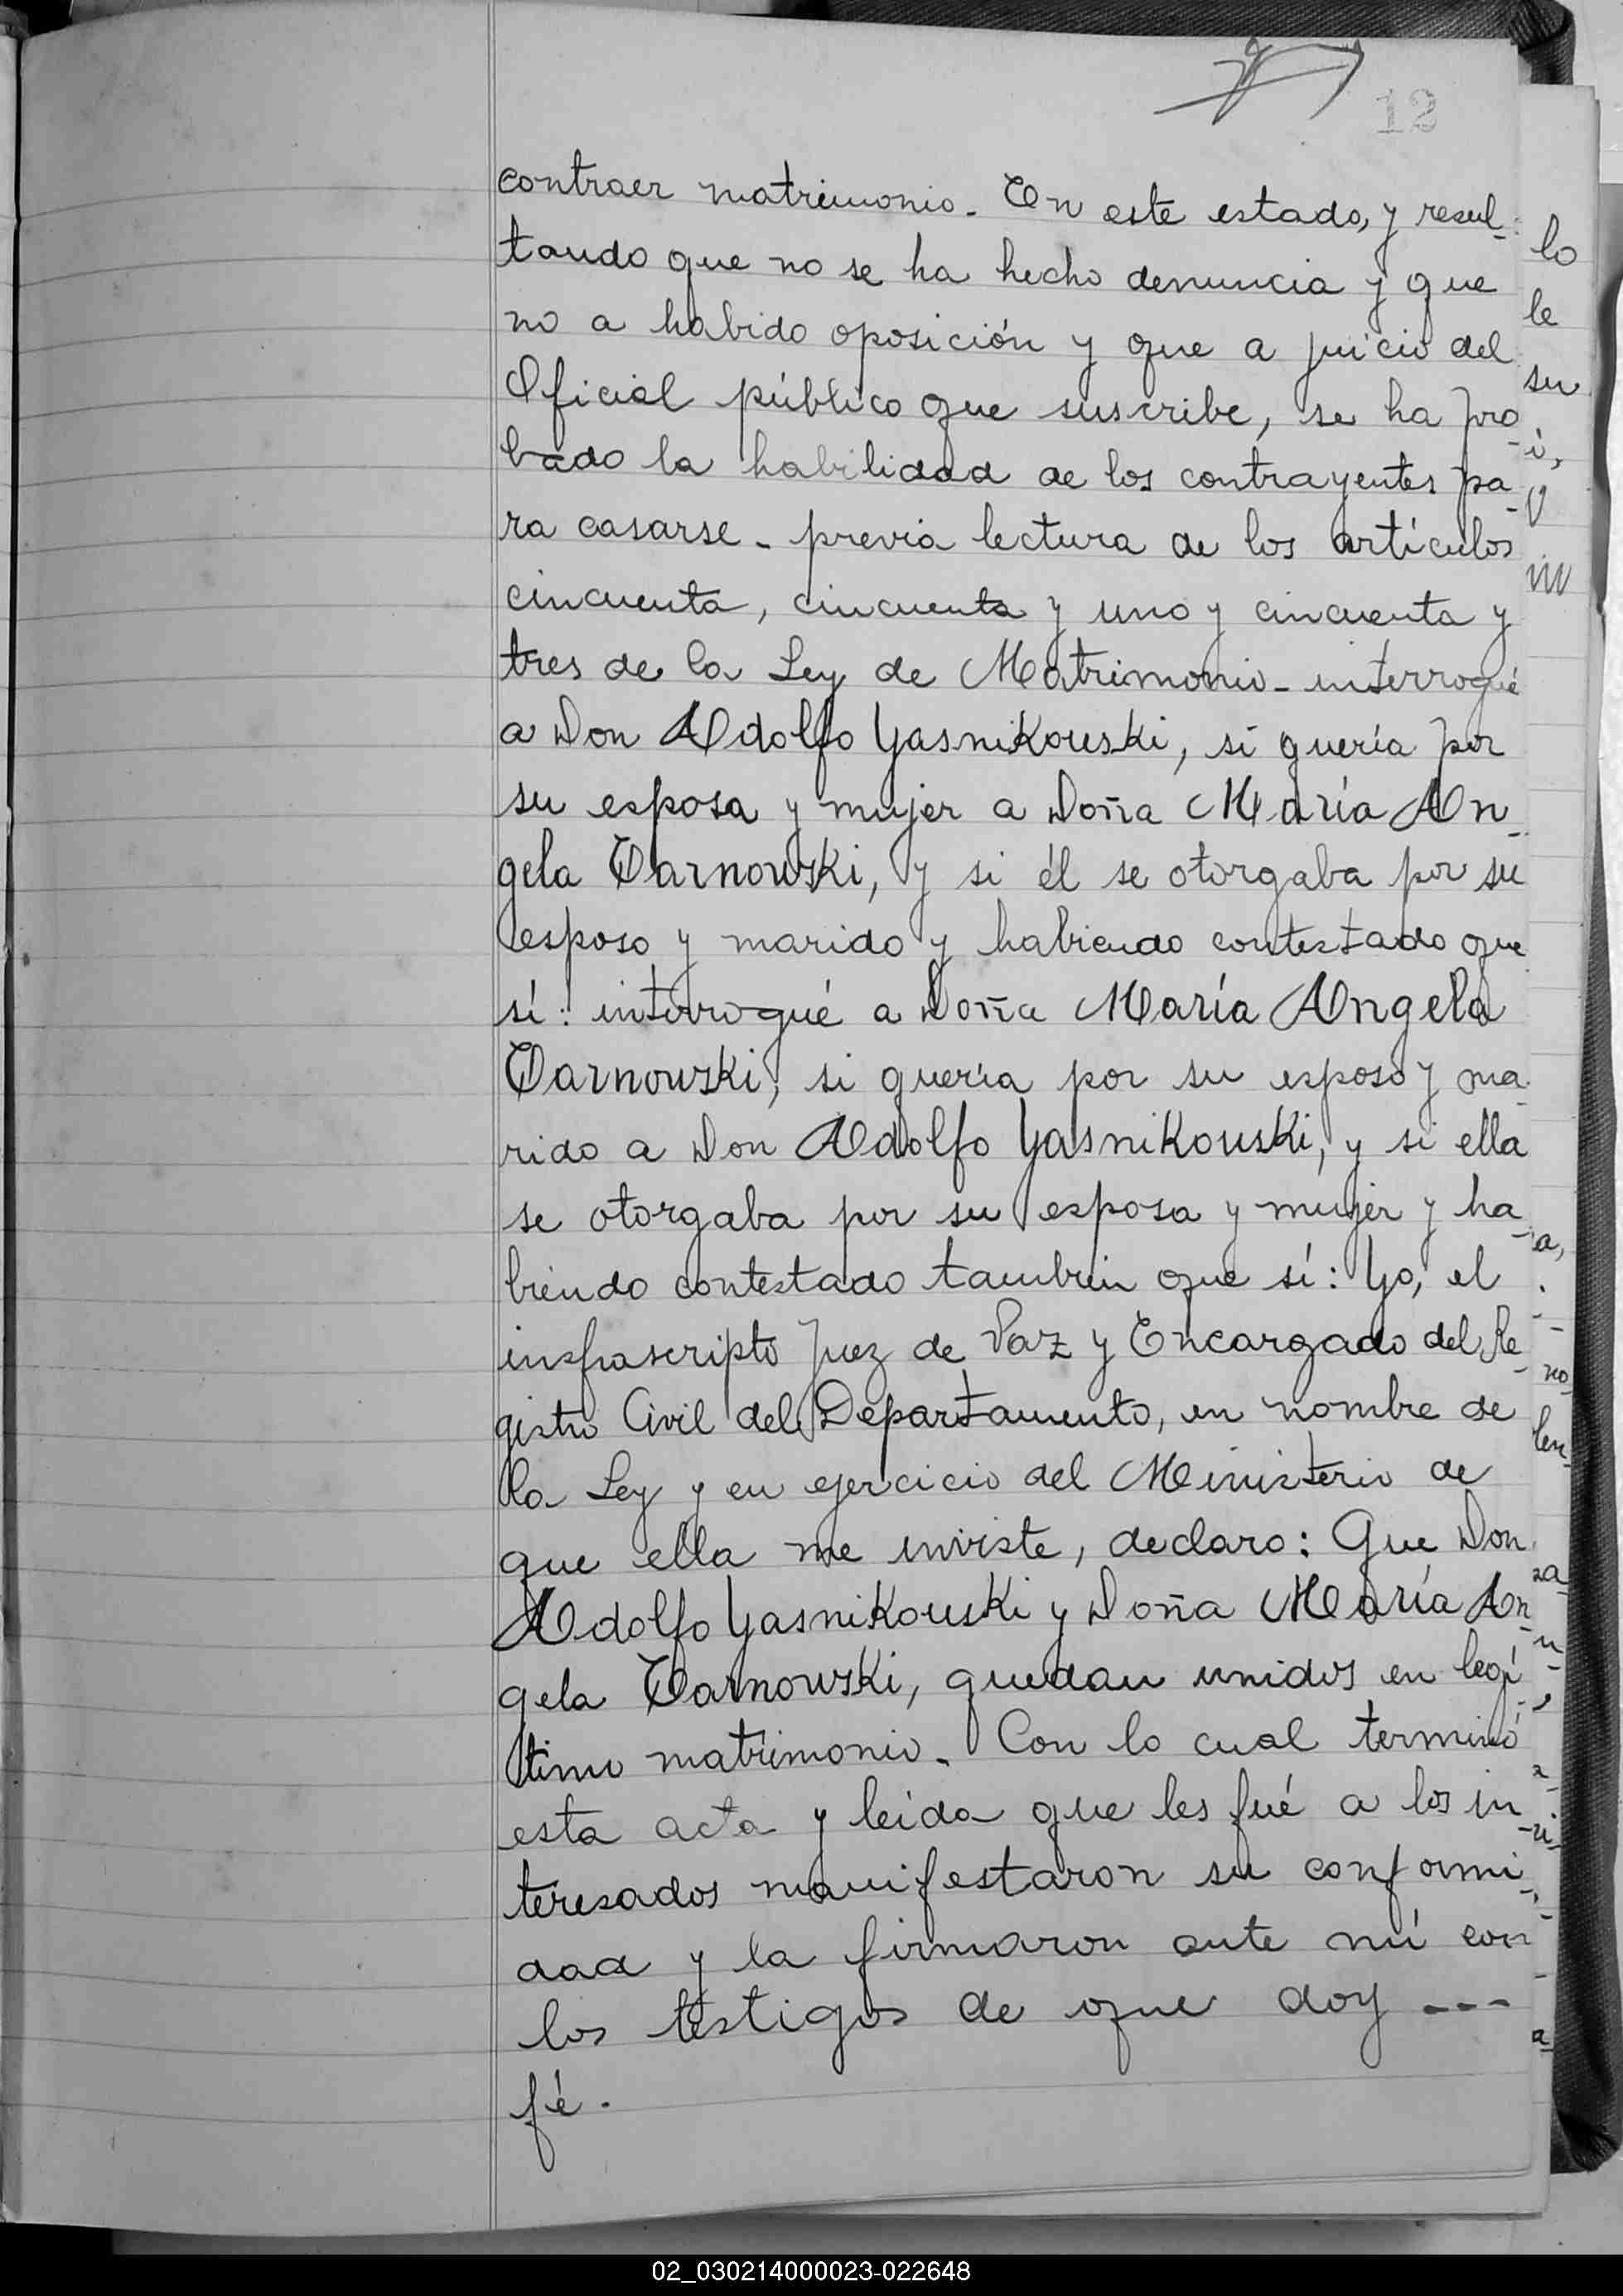 12
contraer matrimonio. En este estado, y resul-
tando que no se ha hecho denuncia y que
no a habido oposición y que a juicio del
Oficial público que suscribe, se ha pro-
bado la habilidad de los contrayentes pa-
ra casarse - previa lectura de los artículos
cincuenta, cincuenta y uno y cincuenta y
tres de la Ley de Matrimonio - interrogué
a Don Adolfo Yasnikouski, si quería por
su esposa y mujer a Doña María An-
gela Tarnowski, y si él se otorgaba por su
esposo y marido y habiendo contestado que
sí: interrogué a Doña María Angela
Tarnowski, si quería por su esposo y ma-
rido a Don Adolfo Yasnikouski, y si ella
se otorgaba por su esposa y mujer y ha-
biendo contestado tambien que sí: Yo, el
infrascripto Juez de Paz y Encargado del Re-
gistro Civil del Departamento, en nombre de
la Ley y en ejercicio del Ministerio de
que ella me inviste, declaro: Que Don
Adolfo Yasnikouski y Doña María An-
gela Tarnowski, quedan unidos en legí-
timo matrimonio. Con lo cual terminó
esta acta y leida que les fué a los in-
teresados manifestaron su conformi-
dad y la firmaron ante mí con
los testigos de que doy ---
fé.
lo
le
su
02_030214000023-022648